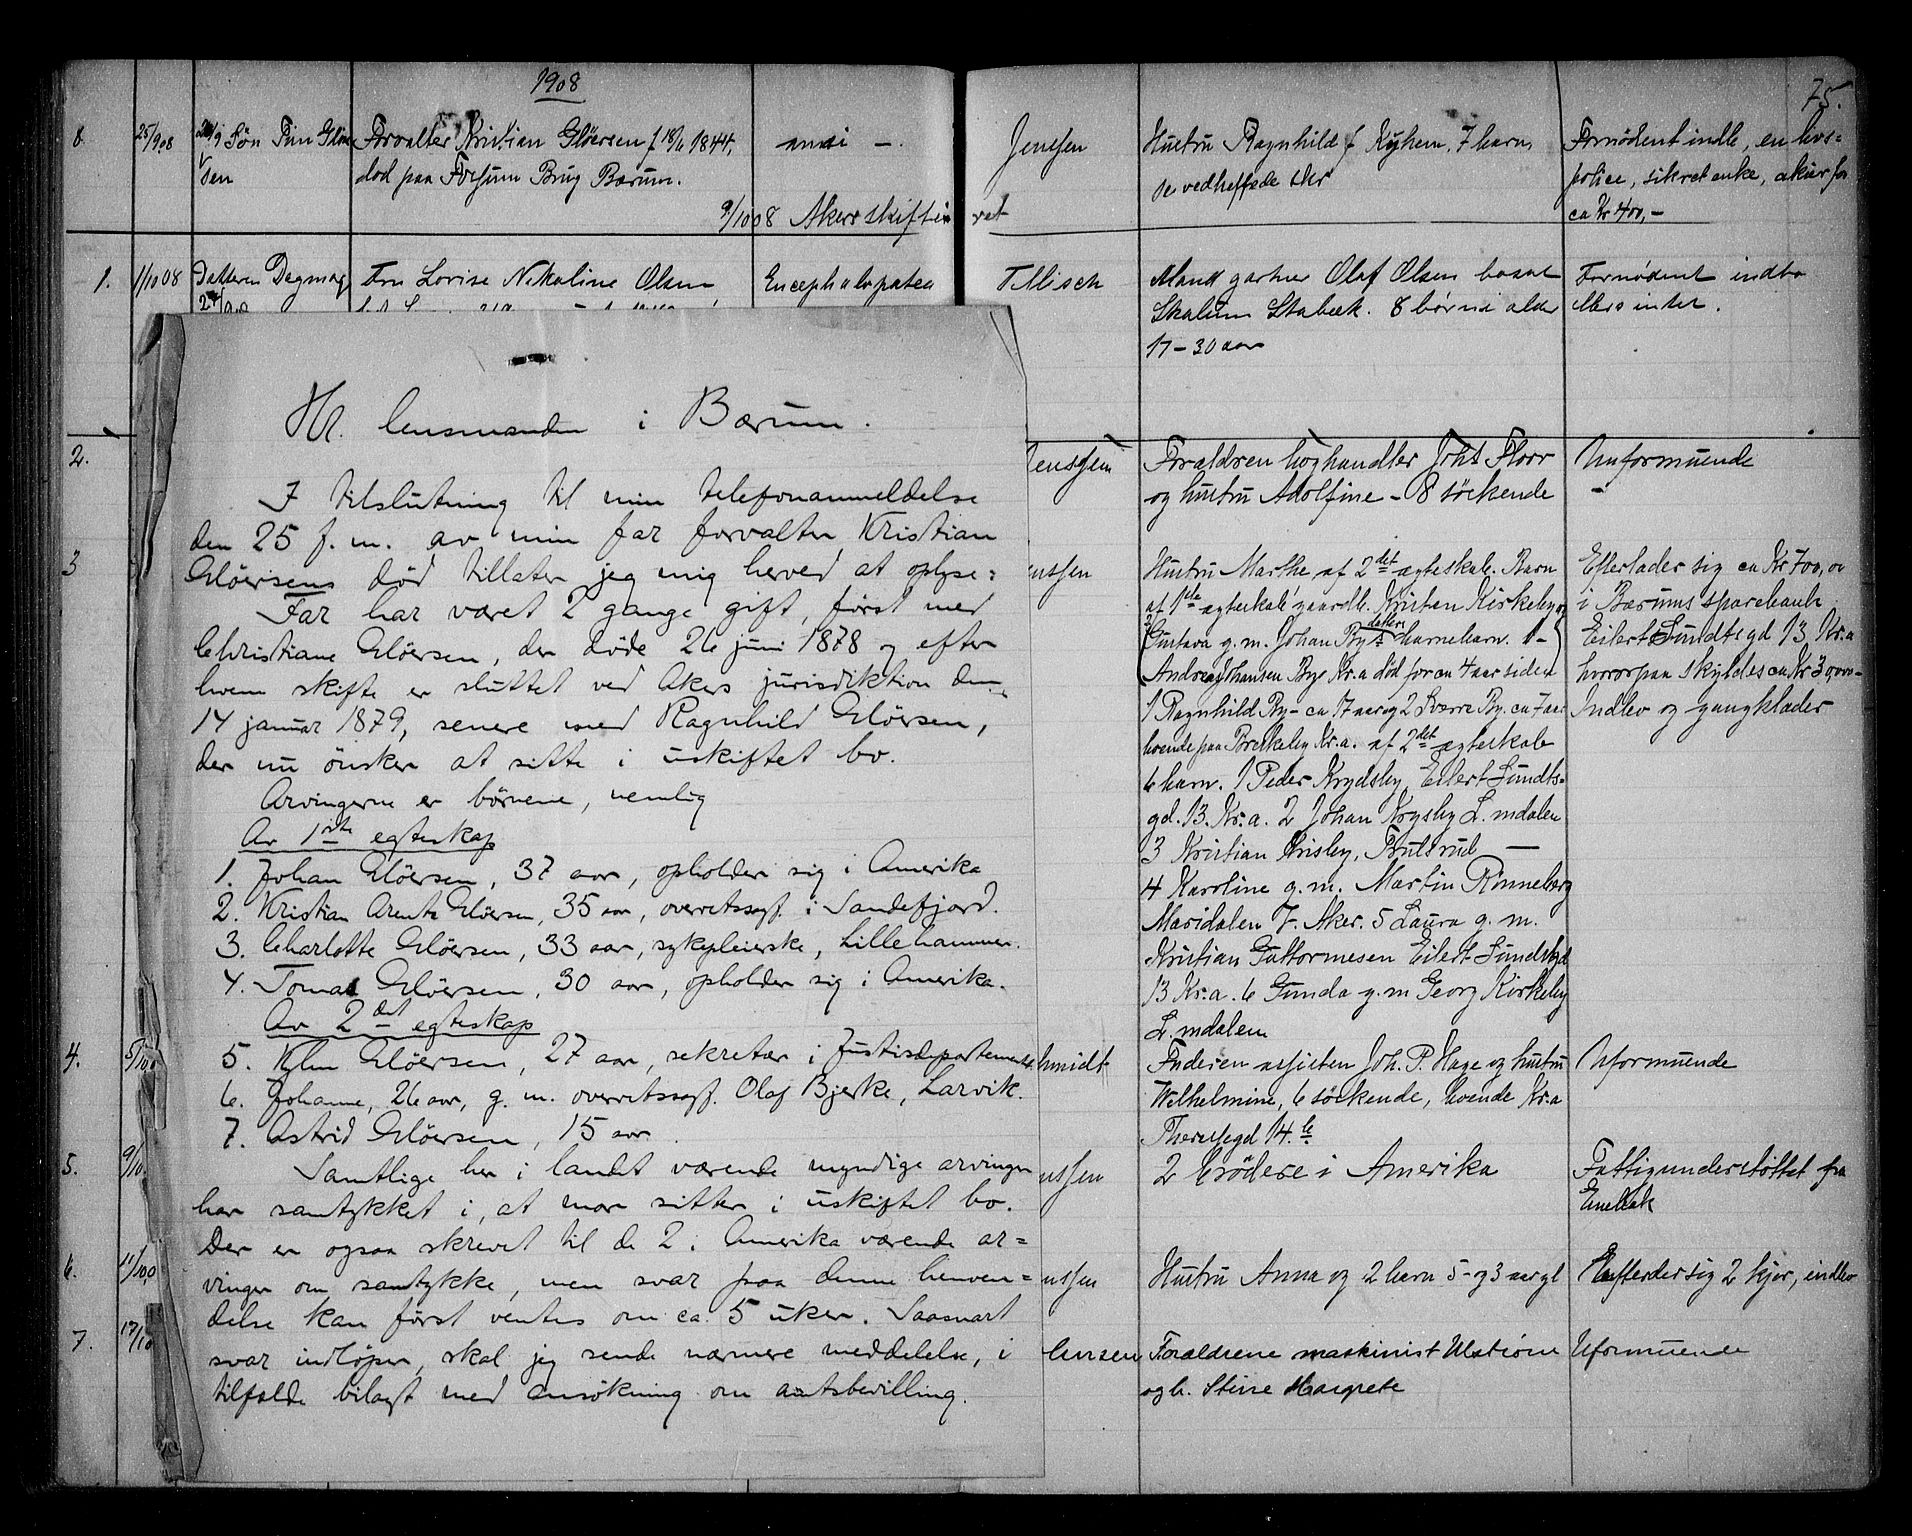 1908
75.
8. 25/9 08 Søn Finn Gløer
sen
Forvalter Kristian Gløersen f 18/6 1844,
død paa Fossum Brug Bærum.
9/10 08 Akers skifteret
Jenssen
Hustru Ragnhild f Kyhem, 7 børn,
se vedheftede skr
Fornødent indbo, en livs-
police, sikret enke, aktier for
ca Kr 400,-
1. 1/10 08 Datteren Dagmar
Fru Lovise Nikoline Olsen
Encephalopatea
Tillisch
Mand gartner Olaf Olsen bosat
Skalum Stabæk. 8 børn i alder
17-30 aar
Fornødent indbo
Mere intet.
Hr. lensmanden i Bærum.
I tilslutning til min telefonanmeldelse
den 25 f. m. av min far forvalter Kristian
Gløersens død tillater jeg mig herved at oplyse:
Far har været 2 gange gift, først med
Christiane Gløersen, der døde 26 juni 1878 og efter
hvem skifte er sluttet ved Akers jurisdiktion den
14 januar 1879, senere med Ragnhild Gløersen,
der nu ønsker at sitte i uskiftet bo.
Arvingerne er børnene, nemlig
Av 1ste egteskap
1. Johan Gløersen, 37 aar, opholder sig i Amerika
2. Kristian Arentz Gløersen, 35 aar, overretssagf. i Sandefjord.
3. Charlotte Gløersen, 33 aar, sykepleierske, Lillehammer.
4. Tomas Gløersen, 30 aar, opholder sig i Amerika.
Av 2det egteskap
5. Kylm Gløersen, 27 aar, sekretær i Justisdepartementet.
6. Johanne, 26 aar, g. m. overretssagf. Olaf Bjerke, Larvik.
7. Astrid Gløersen, 15 aar.
Samtlige her i landet værende myndige arvinger
har samtykket i, at mor sitter i uskiftet bo.
Der er ogsaa skrevet til de 2 i Amerika værende ar=
vinger om samtykke, men svar paa denne henven=
delse kan først ventes om ca. 5 uker. Saasnart
svar indløper, skal jeg sende nærmere meddelelse, i
tilfælde bilagt med ansøkning om amtsbevilling.
2.
Jenssen
Forældren loghandler Johs Floor
og hustru Adolfine - 8 søskende
Uformuende
3
enssen
Hustru Marthe af 2det ægteskab. Barn
af 1ste ægteskab gaardb. Kristen Kirkeby og
Gustava g. m. Johan Bye barnebarn. 1-
Andrea Johansen Bye Kr.a død for ca 4 aar siden
1 Ragnhild By - ca 17 aar og 2 Sverre By. ca 7 aar
boende paa Briskeby Kr.a. af 2det ægteskab
6 barn. 1 Peder Krydsby Eilert Sundts-
gd. 13. Kr.a. 2 Johan Krysby L.mdalen
3 Kristian Krisby,
4 Karoline g. m. Martin Rønneberg
Maridalen V. Aker. 5 Laura g. m.
Kristian Guttormesen Eilert Sundtsgd
13 Kr.a. 6 Gunda g. m Georg Kirkeby
L.mdalen
Efterlader sig ca Kr 700,00
i Bærums sparebank
Eilert Sundtsgd 13 Kr.a
hvorpaa skyldes ca Kr 39,000-
Indbo og gangklæder
4. 5/10
hmidt
Faderen Joh. P. Hage og hustru
Wilhelmine, 6 søskende, boende Kr.a
Theresegd 14.b
Uformuende
5. 9/10
nssen
2 brødere i Amerika
Fattigunderstøttet fra
Enebak
6. 11/10
nssen
Hustru Anna og 2 barn 5- og 3 aar gl
Efterlader sig 2 kjør, indbo
7. 17/10
Jensen
Forældrene maskinist Ulstrøm
og h. Margrete
Uformuende